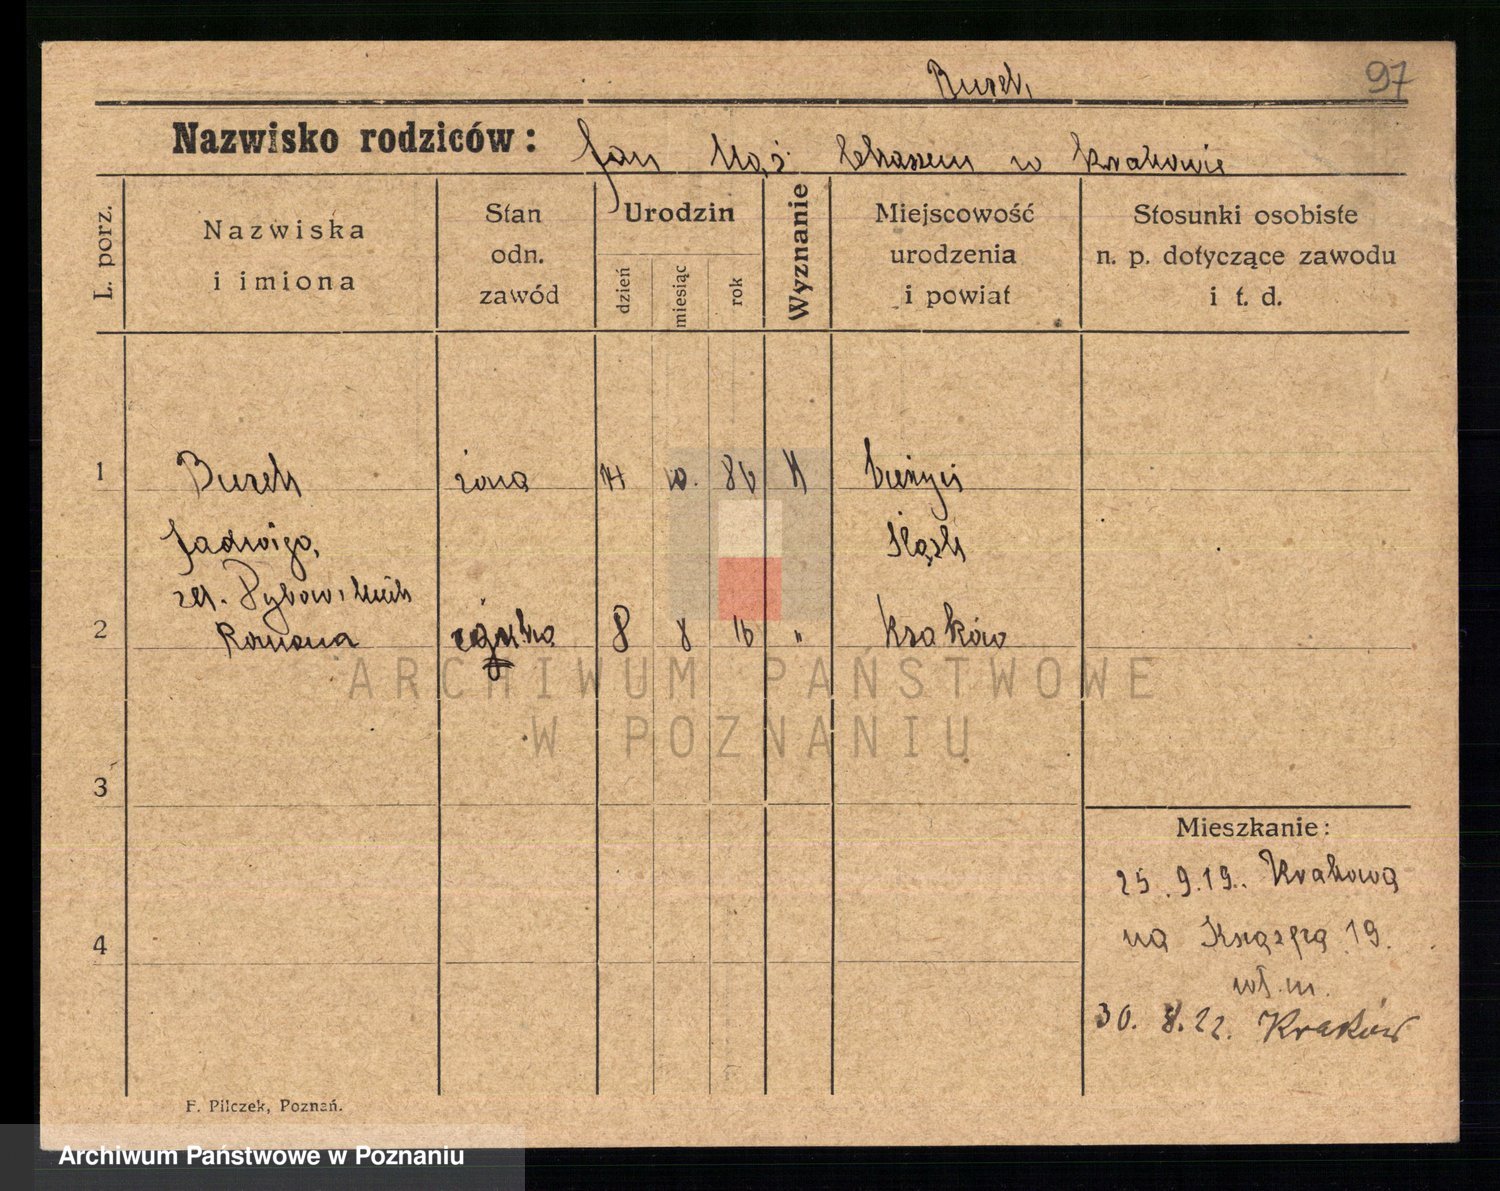 Burek
97
Nazwisko rodziców: Jan Mąż lekarzem w Krakowie
L. porz.
Nazwiska i imiona
Stan odn. zawód
Urodzin
dzień
miesiąc
rok
Wyznanie
Miejscowość urodzenia i powiat
Stosunki osobiste n. p. dotyczące zawodu i t. d.
1 Burek żona 14 10. 86 K
Jadwiga, Śląsk
2 Romana córka 8 8 16 " Kraków
3
4
Mieszkanie:
25.9.19. Krakowa
na 19.
30. 8.22. Kraków
F. Pilczek, Poznań.
ARCHIWUM PAŃSTWOWE
W POZNANIU
Archiwum Państwowe w Poznaniu